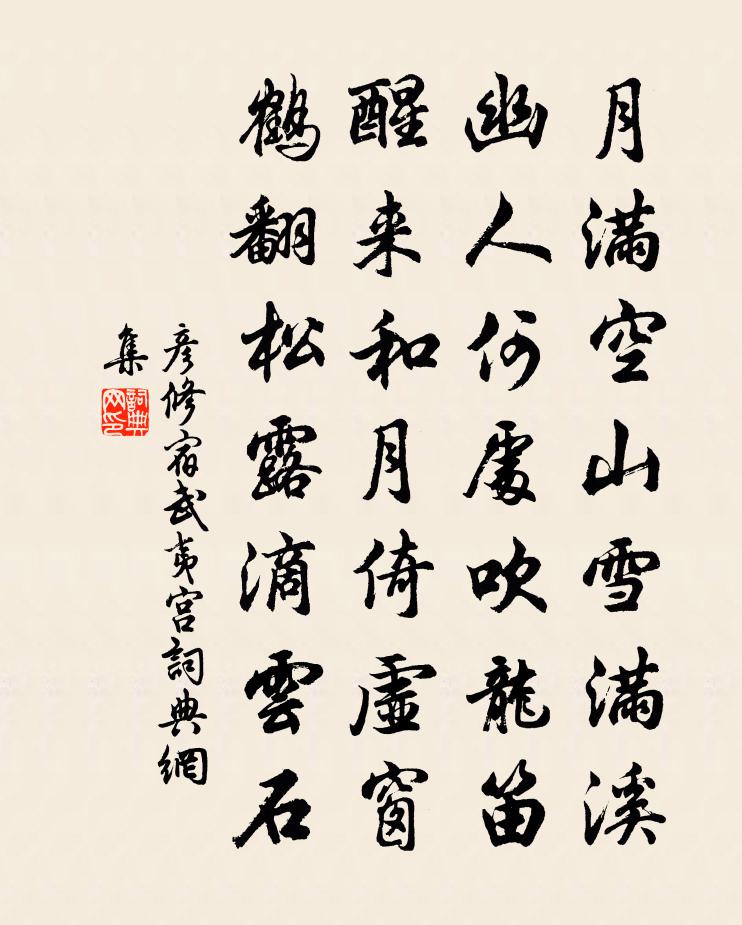 月满空山雪满溪
幽人何處吹龍笛
醒来和月倚虛窗
鶴翻松露滴雲石
彦修宿武夷宫詞典網
集
詞典
网印